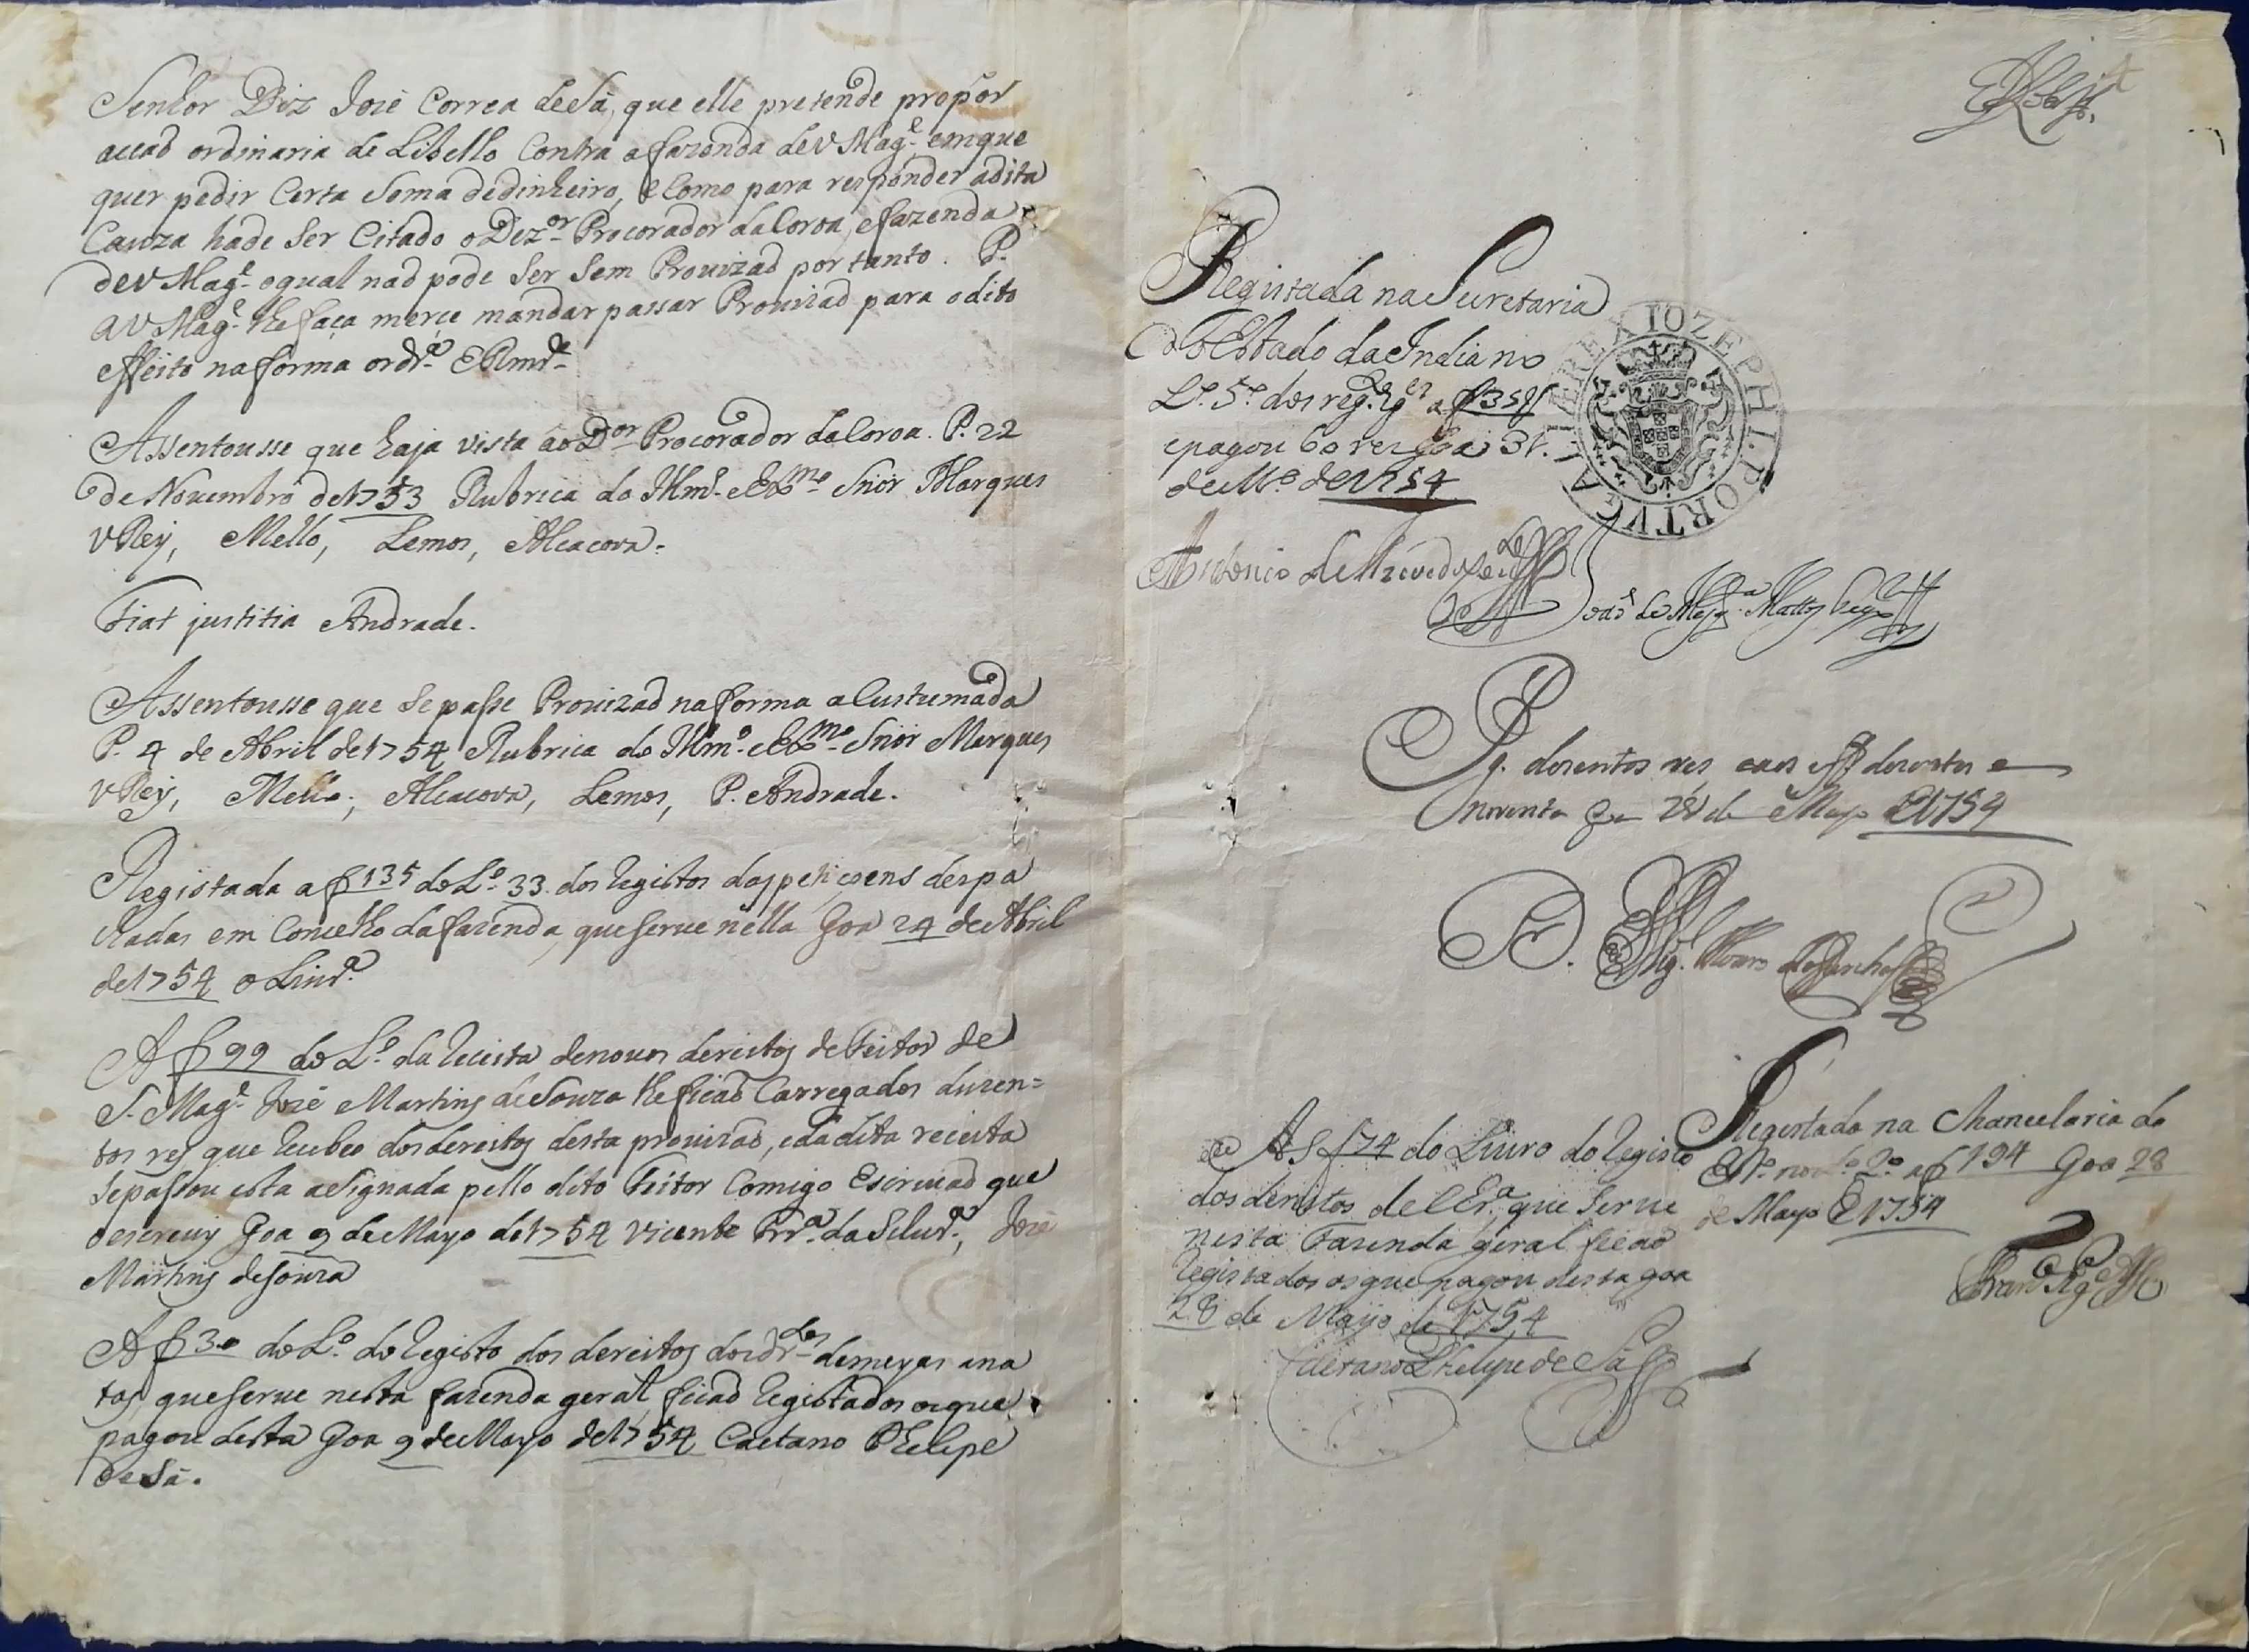 Senhor Diz Jozê Correa deSá, que elle pretende propor
accaõ ordinaria de Libello Contra afazenda deV Mag.e emque
quer pedir Certa Soma dedinheiro, e Como para responder adita
Cauza hade Ser Citado oDez.or Procorador daCoroa, efazenda
deV Mag.e oqual naõ pode Ser Sem Prouizaõ por tanto. P.
aV Mag.e lhefaça merçe mandar passar Prouizaõ para odito
effeito naforma ordr.a ERm.de
Assentousse que haja vista aoD.or Procorador daCoroa. P. 22
de Nouembro de1753 Rubrica do Illm.o eExm.o Snõr Marques
VRey, Mello, Lemos, Alcacova.
Fiat justitia Andrade.
Assentousse que Sepasse Prouizaõ naforma aCustumada
P. 4 de Abril de1754 Rubrica do Illm.o eExm.o Snõr Marques
VRey, Mello, Alcacova, Lemos, P. Andrade.
Registada af 135 doL.o 33. dos registos daspetiçoens despa
chadas em Concelho dafazenda, queserue nella Goa 24 deAbril
de1754
Af 99 doL.o da receita denouos dereitos deFeitor de
S. Mag.e Jozê Martins deSouza lheficaõ Carregados duzen=
tos res que recebeo dosdereitos desta prouizaõ, edadita receita
Sepassou esta aSignada pello dito Feitor Comigo Escriuaõ que
oescreuy Goa 9 deMayo de1754 Vicente Prr.a daSilur.a, Jozê
Martins deSouza
Af 30 doL.o do registo dos dereitos dosordr.os demeyas ana
tas, queserue nesta fazenda geral, ficaõ registados osque
pagou desta Goa 9 deMayo de1754 Caetano Phelipe
deSá.
Registada naSecretaria
doEstado daIndia no
L.o 5.o dos reg.os g.es a f 358
epagou 60 res Goa 31.
deM.o de1754
IOZEPH I PORTVGALIÆ REX
Antonio
Pg. dozentos res, eaos ff dozentos e
noventa Goa 28 de Mayo de1754
Af 174 do Liuro do registo
dosdereitos de que Serue
nesta Fazenda geral ficaõ
registados osque pagou desta goa
28 de Mayo de 1754
Caetano Phelipe de Sá
Registada na Chancelaria do
Est.o no L.o 2.o af 194 Goa 28
de Mayo de 1754